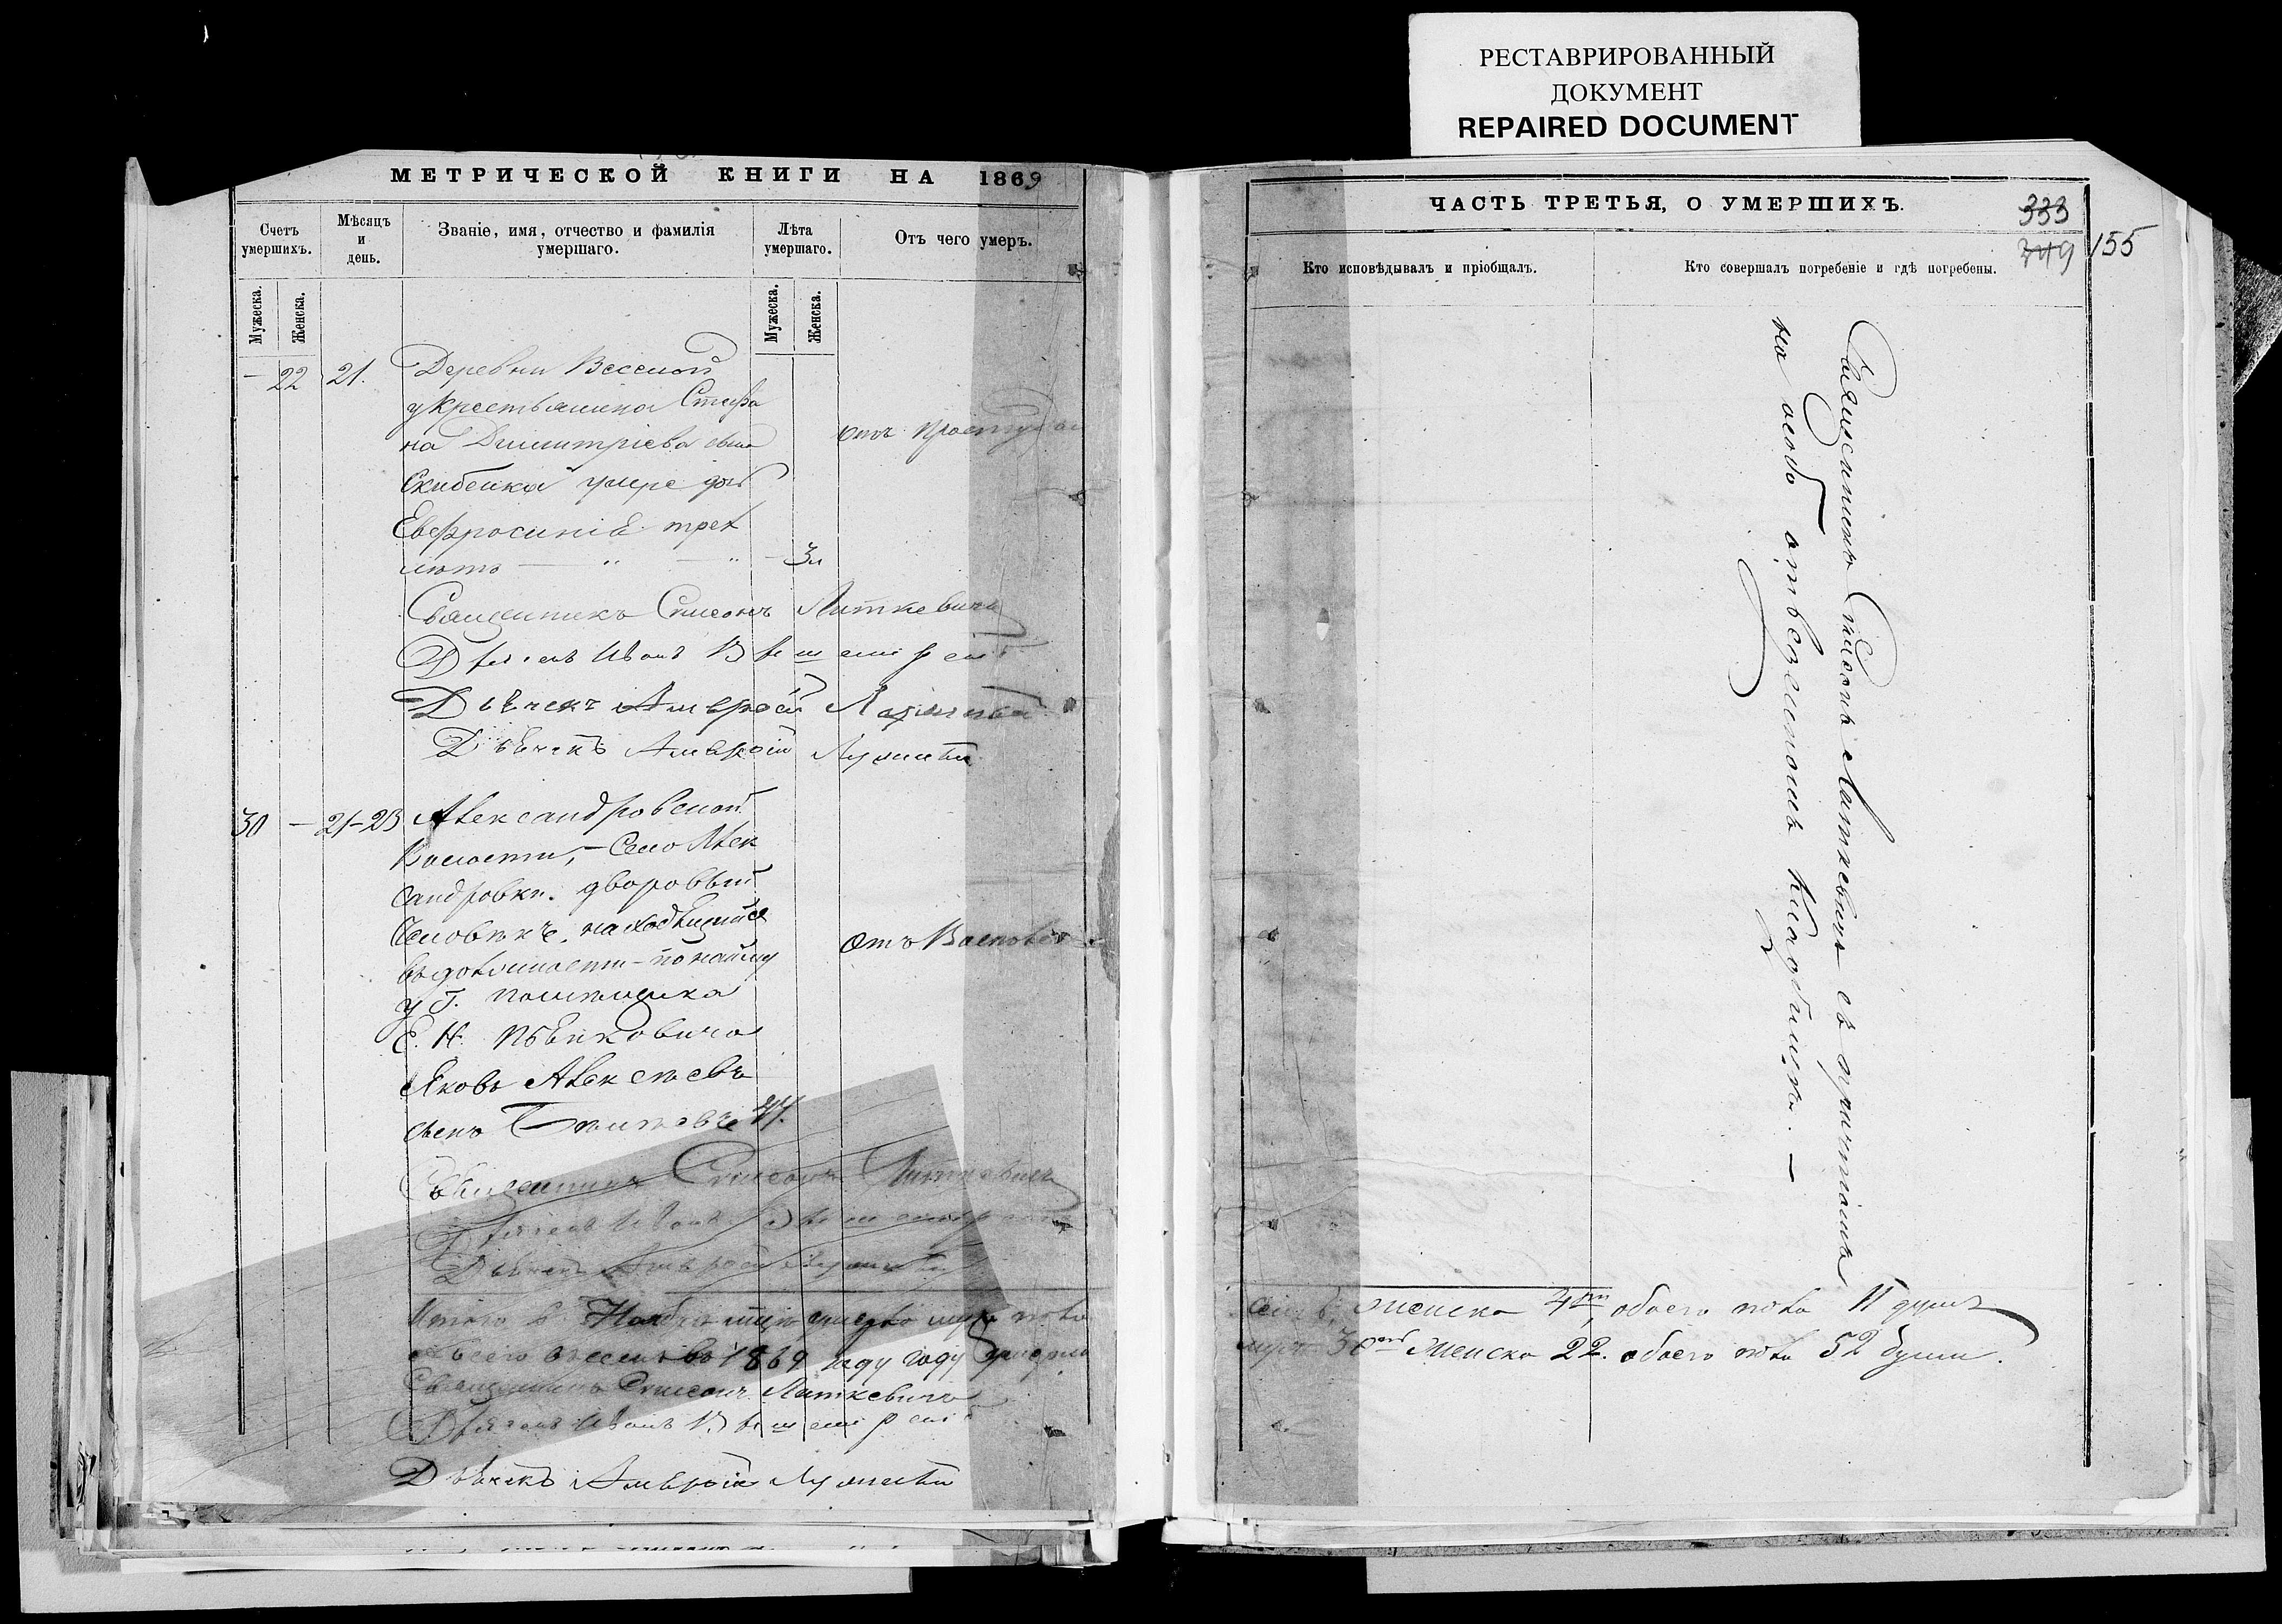 РЕСТАВРИРОВАННЫЙ
ДОКУМЕНТ
REPAIRED DOCUMENT
МЕТРИЧЕСКОЙ КНИГИ НА 1869
Счетъ умершихъ.
Мужеска.
Женска.
Мѣсяцъ и день.
Званіе, имя, отчество и фамилія умершаго.
Лѣта умершаго.
Мужеска.
Женска.
Отъ чего умеръ.
— 22 21. Деревни Веселой
у крестьянина Стефа
на Димитріева сына
умре дочь
Евфросинія трех
лѣтъ — " — " — 3л
отъ простуды
Священникъ Симеонъ Латкевичъ
Иванъ
Дьячекъ Амвросій
Дьячекъ Амвросій
30 — 21-23 Александровской
Волости, — Село Алек
сандровки. дворовый
Человѣкъ, находящийся
въ должности — по найму
у Г. помѣщика
Е. Н.
Яковъ Алексѣевъ
сынъ
отъ
Священникъ Симеонъ Латкевичъ
Иванъ
Дьячекъ Амвросій
Итого в Ноябрѣ мцѣ умерло муж. пола
А всего въ семъ 1869 году году умерло
Священникъ Симеонъ Латкевичъ
Иванъ
Дьячекъ Амвросій
ЧАСТЬ ТРЕТЬЯ, О УМЕРШИХЪ.
333
349
155
Кто исповѣдывалъ и пріобщалъ.
Кто совершалъ погребеніе и гдѣ погребены.
Священникъ Симеонъ Латкевичъ съ причтомъ
на особо отведенномъ кладбищѣ. —
семь, женска 4, обоего пола 11 душъ
муж. 30 женска 22. обоего пола 52 души.